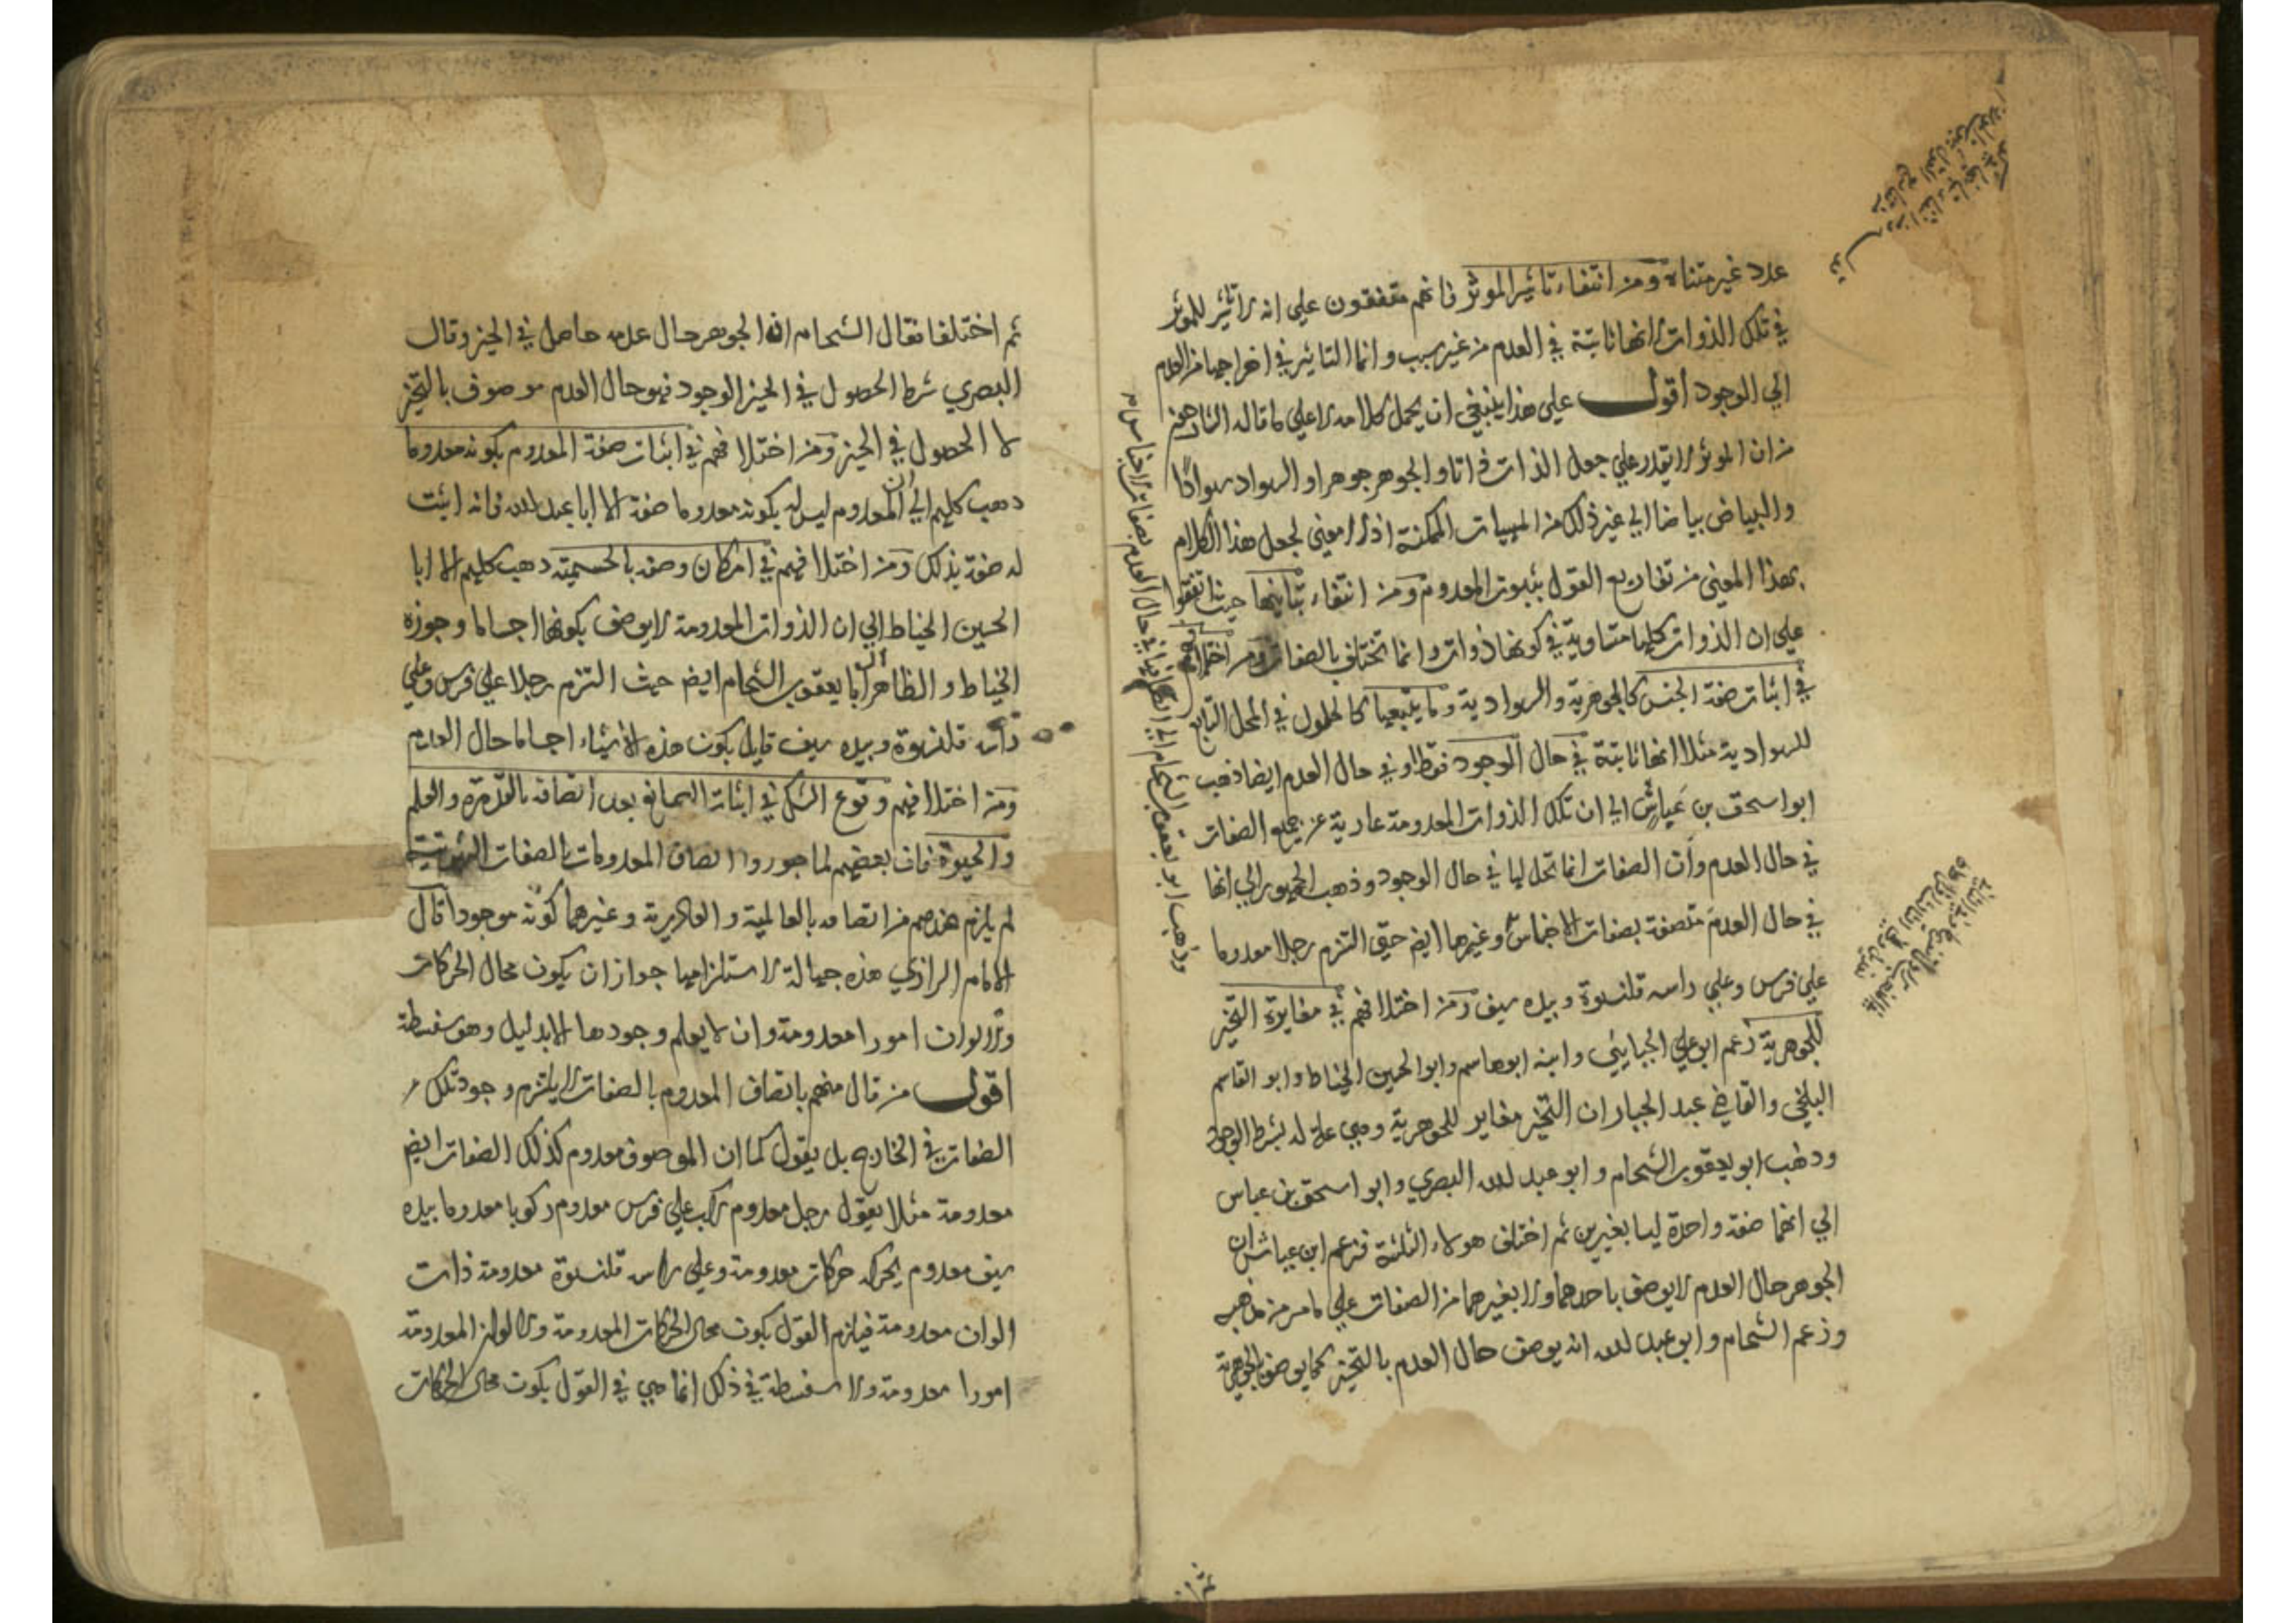 عدد غير متناه ومن انتفاء تاثير الموثر فانهم متفقون علي انه لا تاثير للموثر
في تلك الذوات لانها ثابتة في العدم من غير سبب وانما التاثير في اخراجها من العدم
الي الوجود اقول علي هذا ينبغي ان يحمل كلامه لا علي ما قاله الشارحون
من ان الموثر لا يقدر علي جعل الذات ذاتا والجوهر جوهرا والسواد سوادًا
والبياض بياضا الي غير ذلك من المهيات الممكنة اذ لا معني لجعل هذا الكلام
بهذا المعني من تفاريع القول بثبوت المعدوم ومن انتفاء تباينها حيث اتفقوا
علي ان الذوات كلها متساوية في كونها ذوات وانما تختلف بالصفات ومن اختلافهم
في اثبات صفة الجنس كالجوهرية والسوادية وما يتبعها كالحلول في المحل التابع
للسوادية مثلا انها ثابتة في حال الوجود فقط او في حال العدم ايضا فذهب
ابو اسحق بن عياش الي ان تلك الذوات المعدومة عارية عن جميع الصفات
في حال العدم وأن الصفات انما تحل لها في حال الوجود وذهب الجمهور الي انها
في حال العدم متصفة بصفات الاجناس وغيرها ايض حتي التزم رجلا معدوما
علي فرس وعلي راسه قلنسوة وبيده سيف ومن اختلافهم في مغايرة التحيز
للجوهرية زعم ابو علي الجبايئي وابنه ابو هاسم وابو الحسين الخياط وابو القاسم
البلخي والقاضي عبد الجبار ان التحيز مغاير للجوهرية وهي علة له بشرط الوجود
وذهب ابو يعقوب الشحام وابو عبد لله البصري وابو اسحق بن عباس
الي انهما صفة واحدة ليسا بغيرين ثم اختلف هولاء الثلثة فزعم ابن عياش ان
الجوهر حال العدم لا يوصف باحدهما ولا بغيرهما من الصفات علي ما مر من مذهبه
وزعم الشحام وابو عبد لله انه يوصف حال العدم بالتحيز كما يوصف بالجوهرية
وذهب ابو يعقوب الشحام الي حال العدم بصفات الاجناس
ثم اختلفا فقال الشحام ان الجوهر حال عدمه حاصل في الحيز وقال
البصري شرط الحصول في الحيز الوجود فهو حال العدم موصوف بالتحيز
لا الحصول في الحيز ومن اختلافهم في اثبات صفة المعدوم بكونه معدوما
ذهب كلهم الي ان المعدوم ليس له بكونه معدوما صفة الا ابا عبد لله فانه اثبت
له صفة بذلك ومن اختلافهم في امكان وصفه بالجسمية ذهب كلهم الا ابا
الحسين الخياط الي ان الذوات المعدومة لا يوصف بكونها اجساما وجوزه
الخياط والظاهر ان ابا يعقوب الشحام ايض حيث التزم رجلا علي فرس وعلي
راسه قلنسوة وبيده سيف قايل بكون هذه الاشياء اجساما حال العدم
ومن اختلافهم وقوع الشك في اثبات الصانع بعد اتصافه بالقدرة والعلم
والحيوة فان بعضهم لما جوزوا اتصاف المعدومات بالصفات الثبوتية
لم يلزم عندهم من اتصافه بالعالمية والقادرية وغيرهما كونه موجودا قال
الامام الرازي هذه جهالة لاستلزامها جواز ان يكون محال الحركات
والالوان امورا معدومة وان لا يعلم وجودها الا بدليل وهو سفسطة
اقول من قال منهم باتصاف المعدوم بالصفات لا يلتزم وجود تلك
الصفات في الخارج بل يقول كما ان الموصوف معدوم كذلك الصفات ايض
معدومة مثلا يقول رجل معدوم راكب علي فرس معدوم ركوبا معدوما بيده
سيف معدوم يحركه حركات معدومة وعلي راسه قلنسوة معدومة ذات
الوان معدومة فيلزم القول بكون محال الحركات المعدومة والالوان المعدومة
امورا معدومة ولا سفسطة في ذلك انما هي في القول بكون محال الحركات